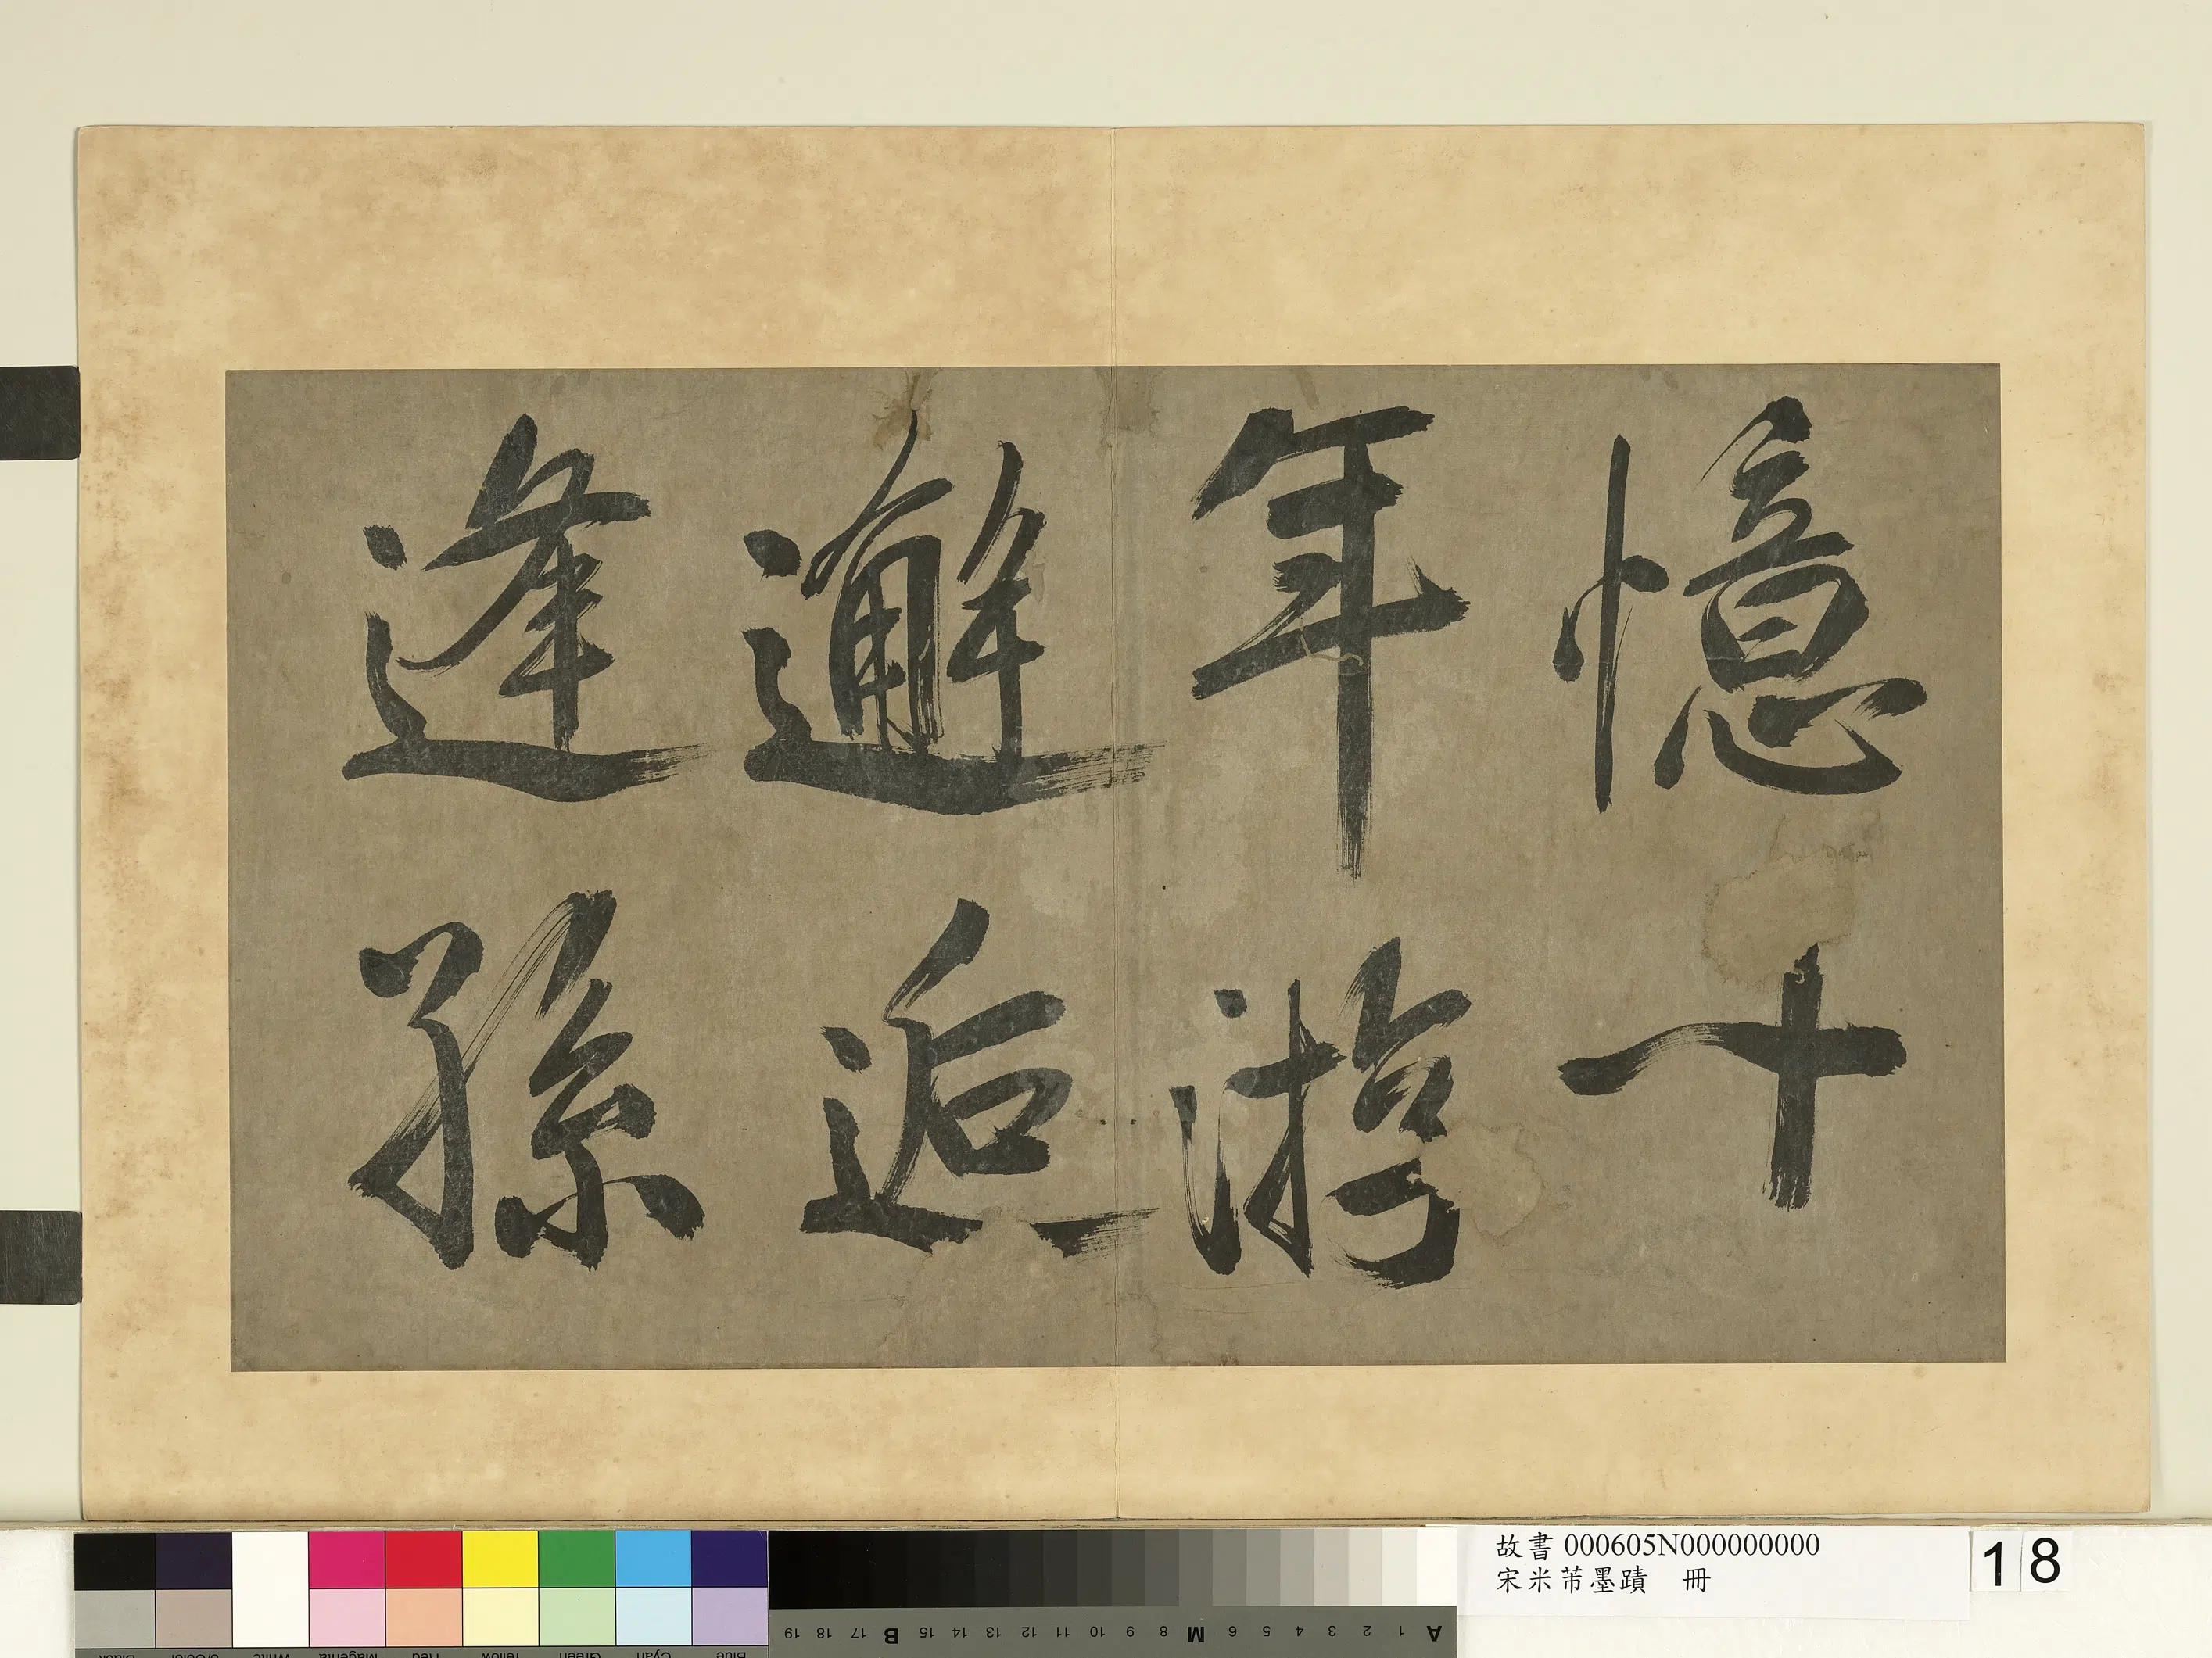 憶十
年游
邂逅
逢孫
故書 000605N000000000
宋米芾墨蹟　冊
18
A 1 2 3 4 5 6 M 8 9 10 11 12 13 14 15 B 17 18 19
Blue Cyan Green Yellow Red Magenta White 3/Color Black